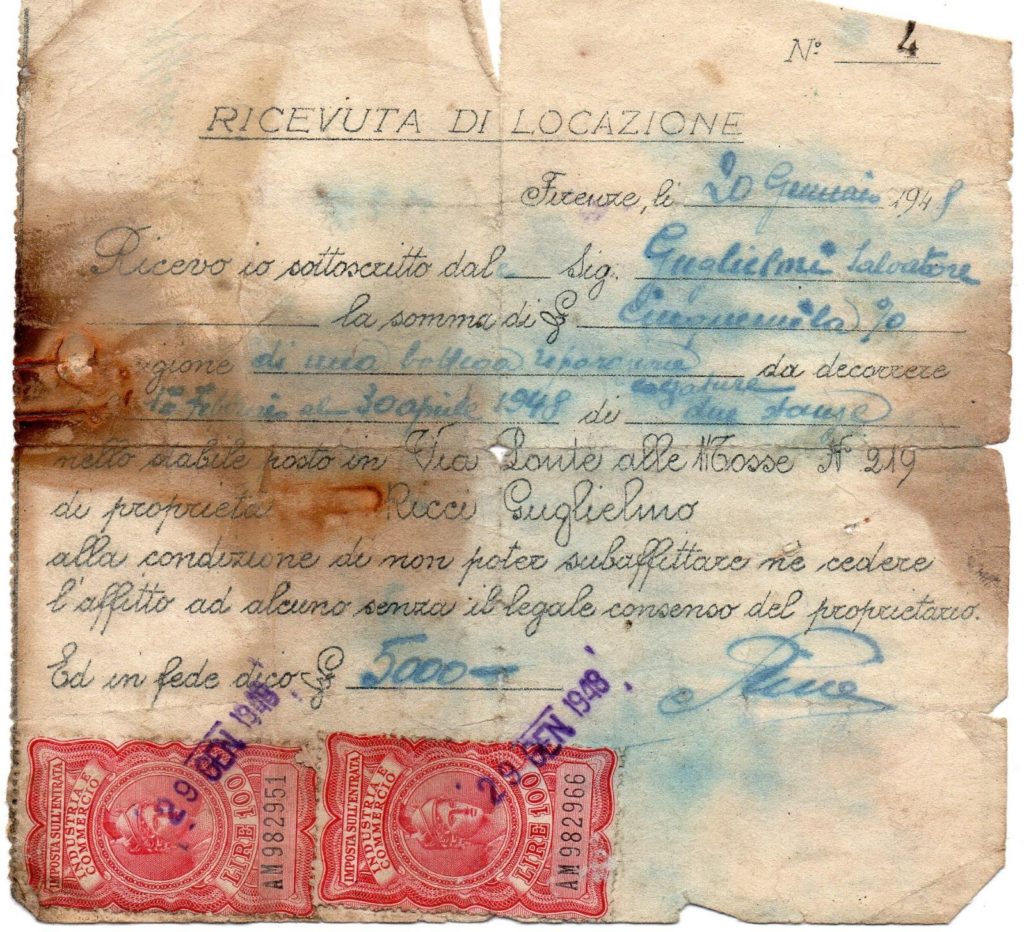 Nº 4
RICEVUTA DI LOCAZIONE
Firenze, li 20 Gennaio 1948
Ricevo io sottoscritto dal Sig. Guglielmi Salvatore
la somma di £ Cinquemila %
di una bottega da decorrere
Febbraio al 30 aprile 1948 di due stanze
nello stabile posto in Via Ponte alle Mosse Nº 219
di proprietà Ricci Guglielmo
alla condizione di non poter subaffittare nè cedere
l'affitto ad alcuno senza il legale consenso del proprietario.
Ed in fede dico £ 5000
29 GEN 1948
29 GEN 1948
IMPOSTA SULL'ENTRATA
INDUSTRIA E
COMMERCIO
LIRE 100
AM982951
IMPOSTA SULL'ENTRATA
INDUSTRIA E
COMMERCIO
LIRE 100
AM982966